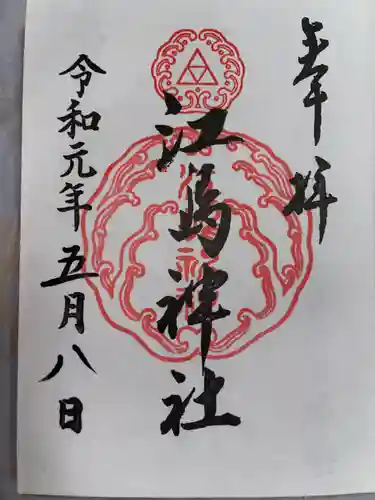 奉拝
江島神社
令和元年五月八日